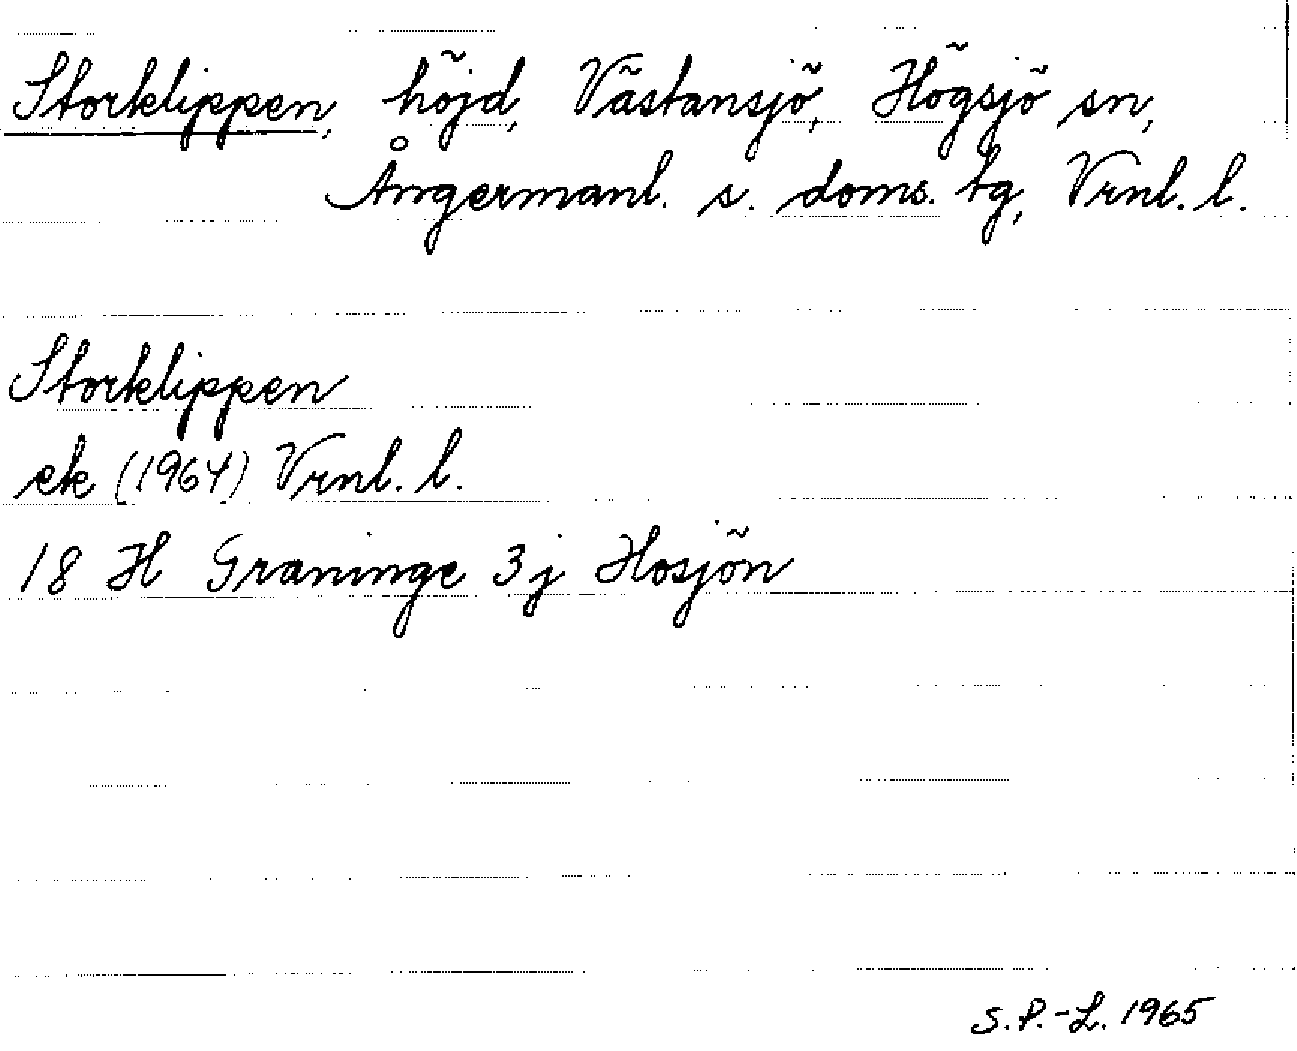 Storklippen, höjd, Västansjö, Högsjö sn,
Ångermanl. s. doms. tg, Vrnl. l.
Storklippen
ek (1964) Vrnl. l.
18 H Graninge 3j Hosjön
S.P.-L. 1965